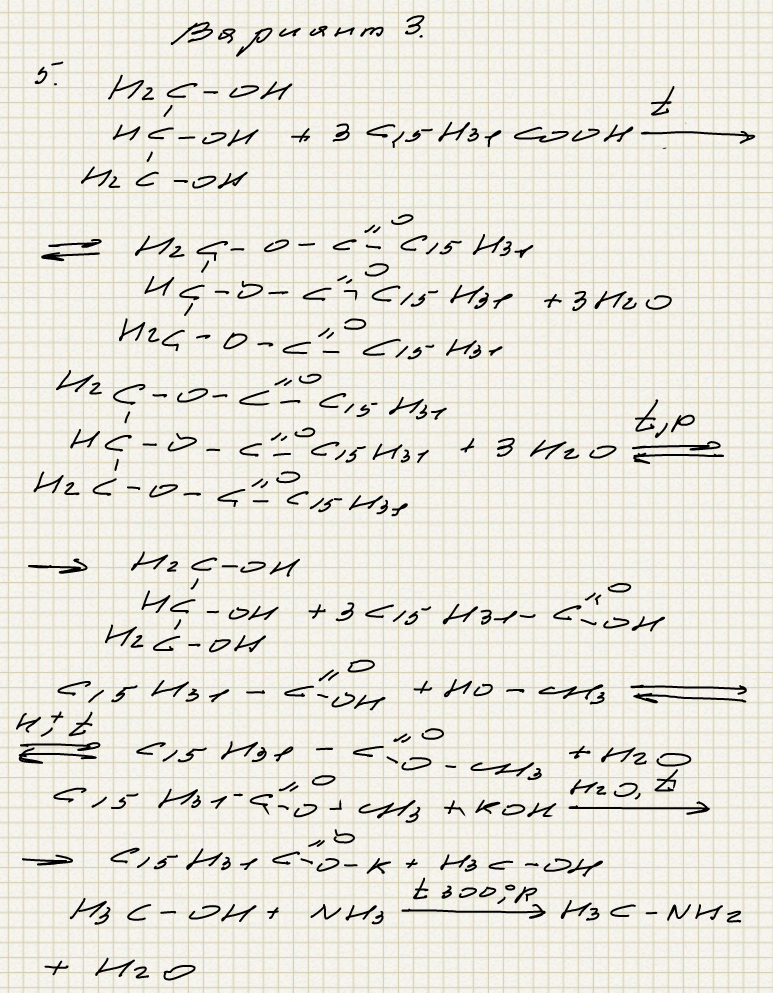 Вариант 3.
5.
H2C-OH
HC-OH + 3 C15H31COOH t →
H2C-OH
⇌ H2C-O-C=O-C15H31
HC-O-C=O-C15H31 + 3H2O
H2C-O-C=O-C15H31
H2C-O-C=O-C15H31
HC-O-C=O-C15H31 + 3H2O t,p ⇌
H2C-O-C=O-C15H31
→ H2C-OH
HC-OH + 3C15H31-C=O-OH
H2C-OH
C15H31-C=O-OH + HO-CH3 ⇌
H+,t ⇌ C15H31-C=O-O-CH3 + H2O
C15H31-C=O-O-CH3 + KOH H2O,t →
→ C15H31C=O-O-K + H3C-OH
H3C-OH + NH3 t 300°,P → H3C-NH2
+ H2O